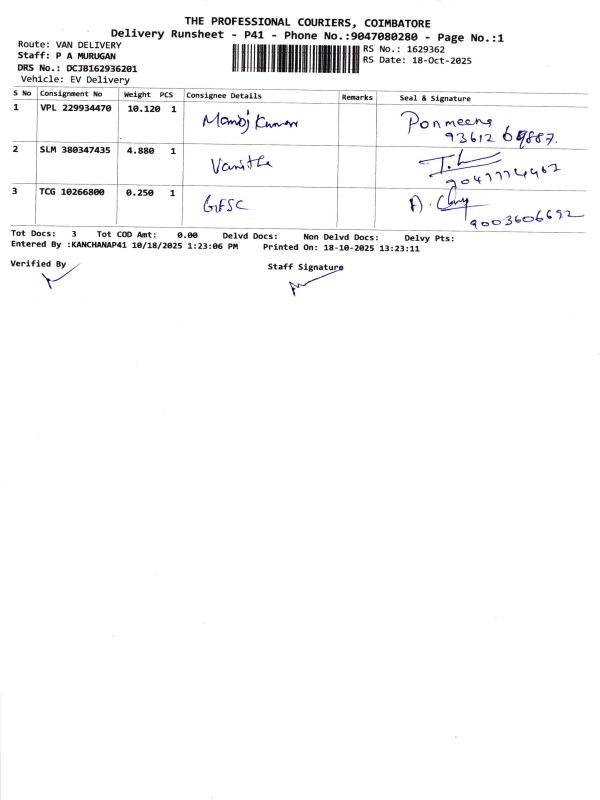 THE PROFESSIONAL COURIERS, COIMBATORE
Delivery Runsheet - P41 - Phone No.:9047080280 - Page No.:1
Route: VAN DELIVERY
RS No.: 1629362
Staff: P A MURUGAN
RS Date: 18-Oct-2025
DRS No.: DCJB162936201
Vehicle: EV Delivery
S No Consignment No Weight PCS Consignee Details Remarks Seal & Signature
1 VPL 229934470 10.120 1 Manoj Kumar Ponmeena
93612 69887.
2 SLM 380347435 4.880 1 Vanitha
3 TCG 10266800 0.250 1 GFSC
9003606692
Tot Docs: 3 Tot COD Amt: 0.00 Delvd Docs: Non Delvd Docs: Delvy Pts:
Entered By :KANCHANAP41 10/18/2025 1:23:06 PM Printed On: 18-10-2025 13:23:11
Verified By Staff Signature